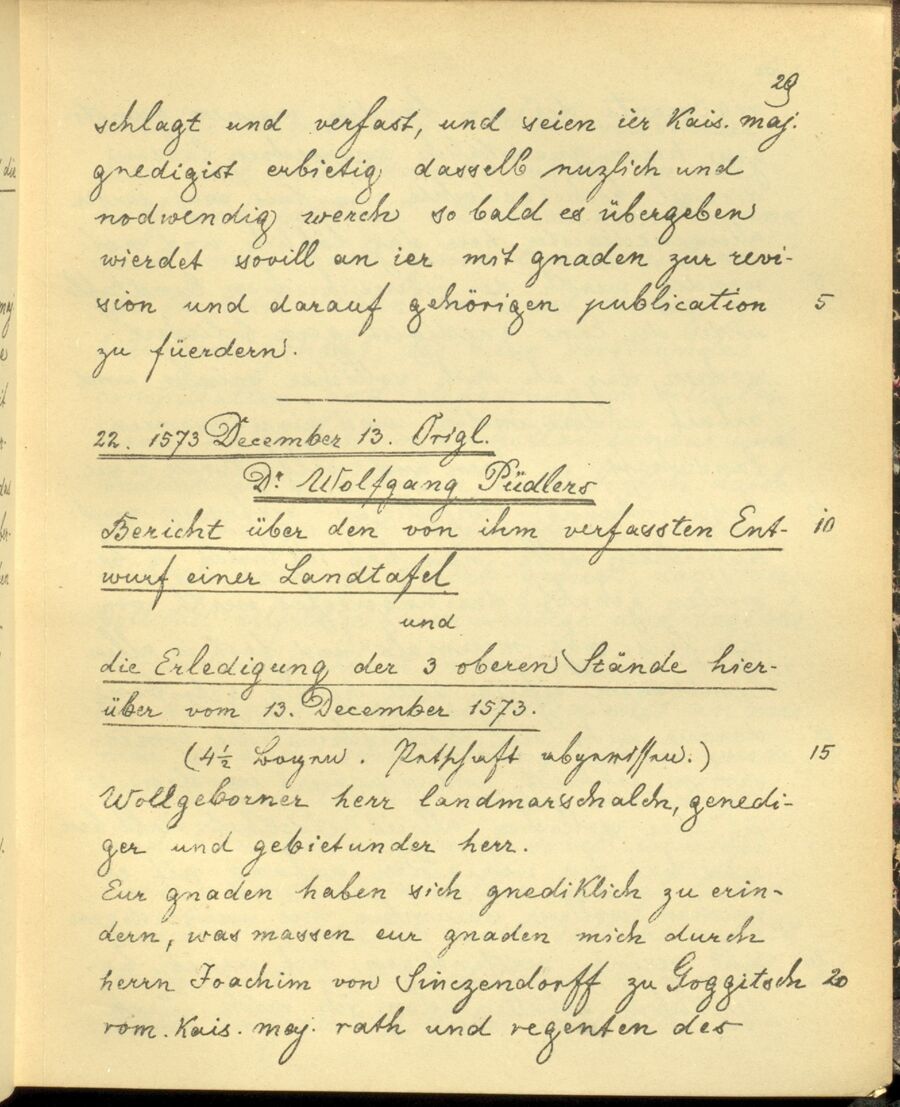 29
schlagt und verfast, und seien ier Kais. maj.
gnedigist erbietig dasselb nuzlich und
nodwendig werch so bald es übergeben
wierdet sovill an ier mit gnaden zur revi-
sion und darauf gehörigen publication 5
zu füerdern.
22. 1573 December 13. Origl.
Dr. Wolfgang Püdlers
Bericht über den von ihm verfassten Ent- 10
wurf einer Landtafel
und
die Erledigung der 3 oberen Stände hier-
über vom 13. December 1573.
(4½ Bogen. Petschaft abgerissen.) 15
Wollgeborner herr landmarschalch, genedi-
ger und gebietunder herr.
Eur gnaden haben sich gnediklich zu erin-
dern, was massen eur gnaden mich durch
herrn Joachim von Sinczendorff zu Goggitsch 20
rom. Kais. maj. rath und regenten des